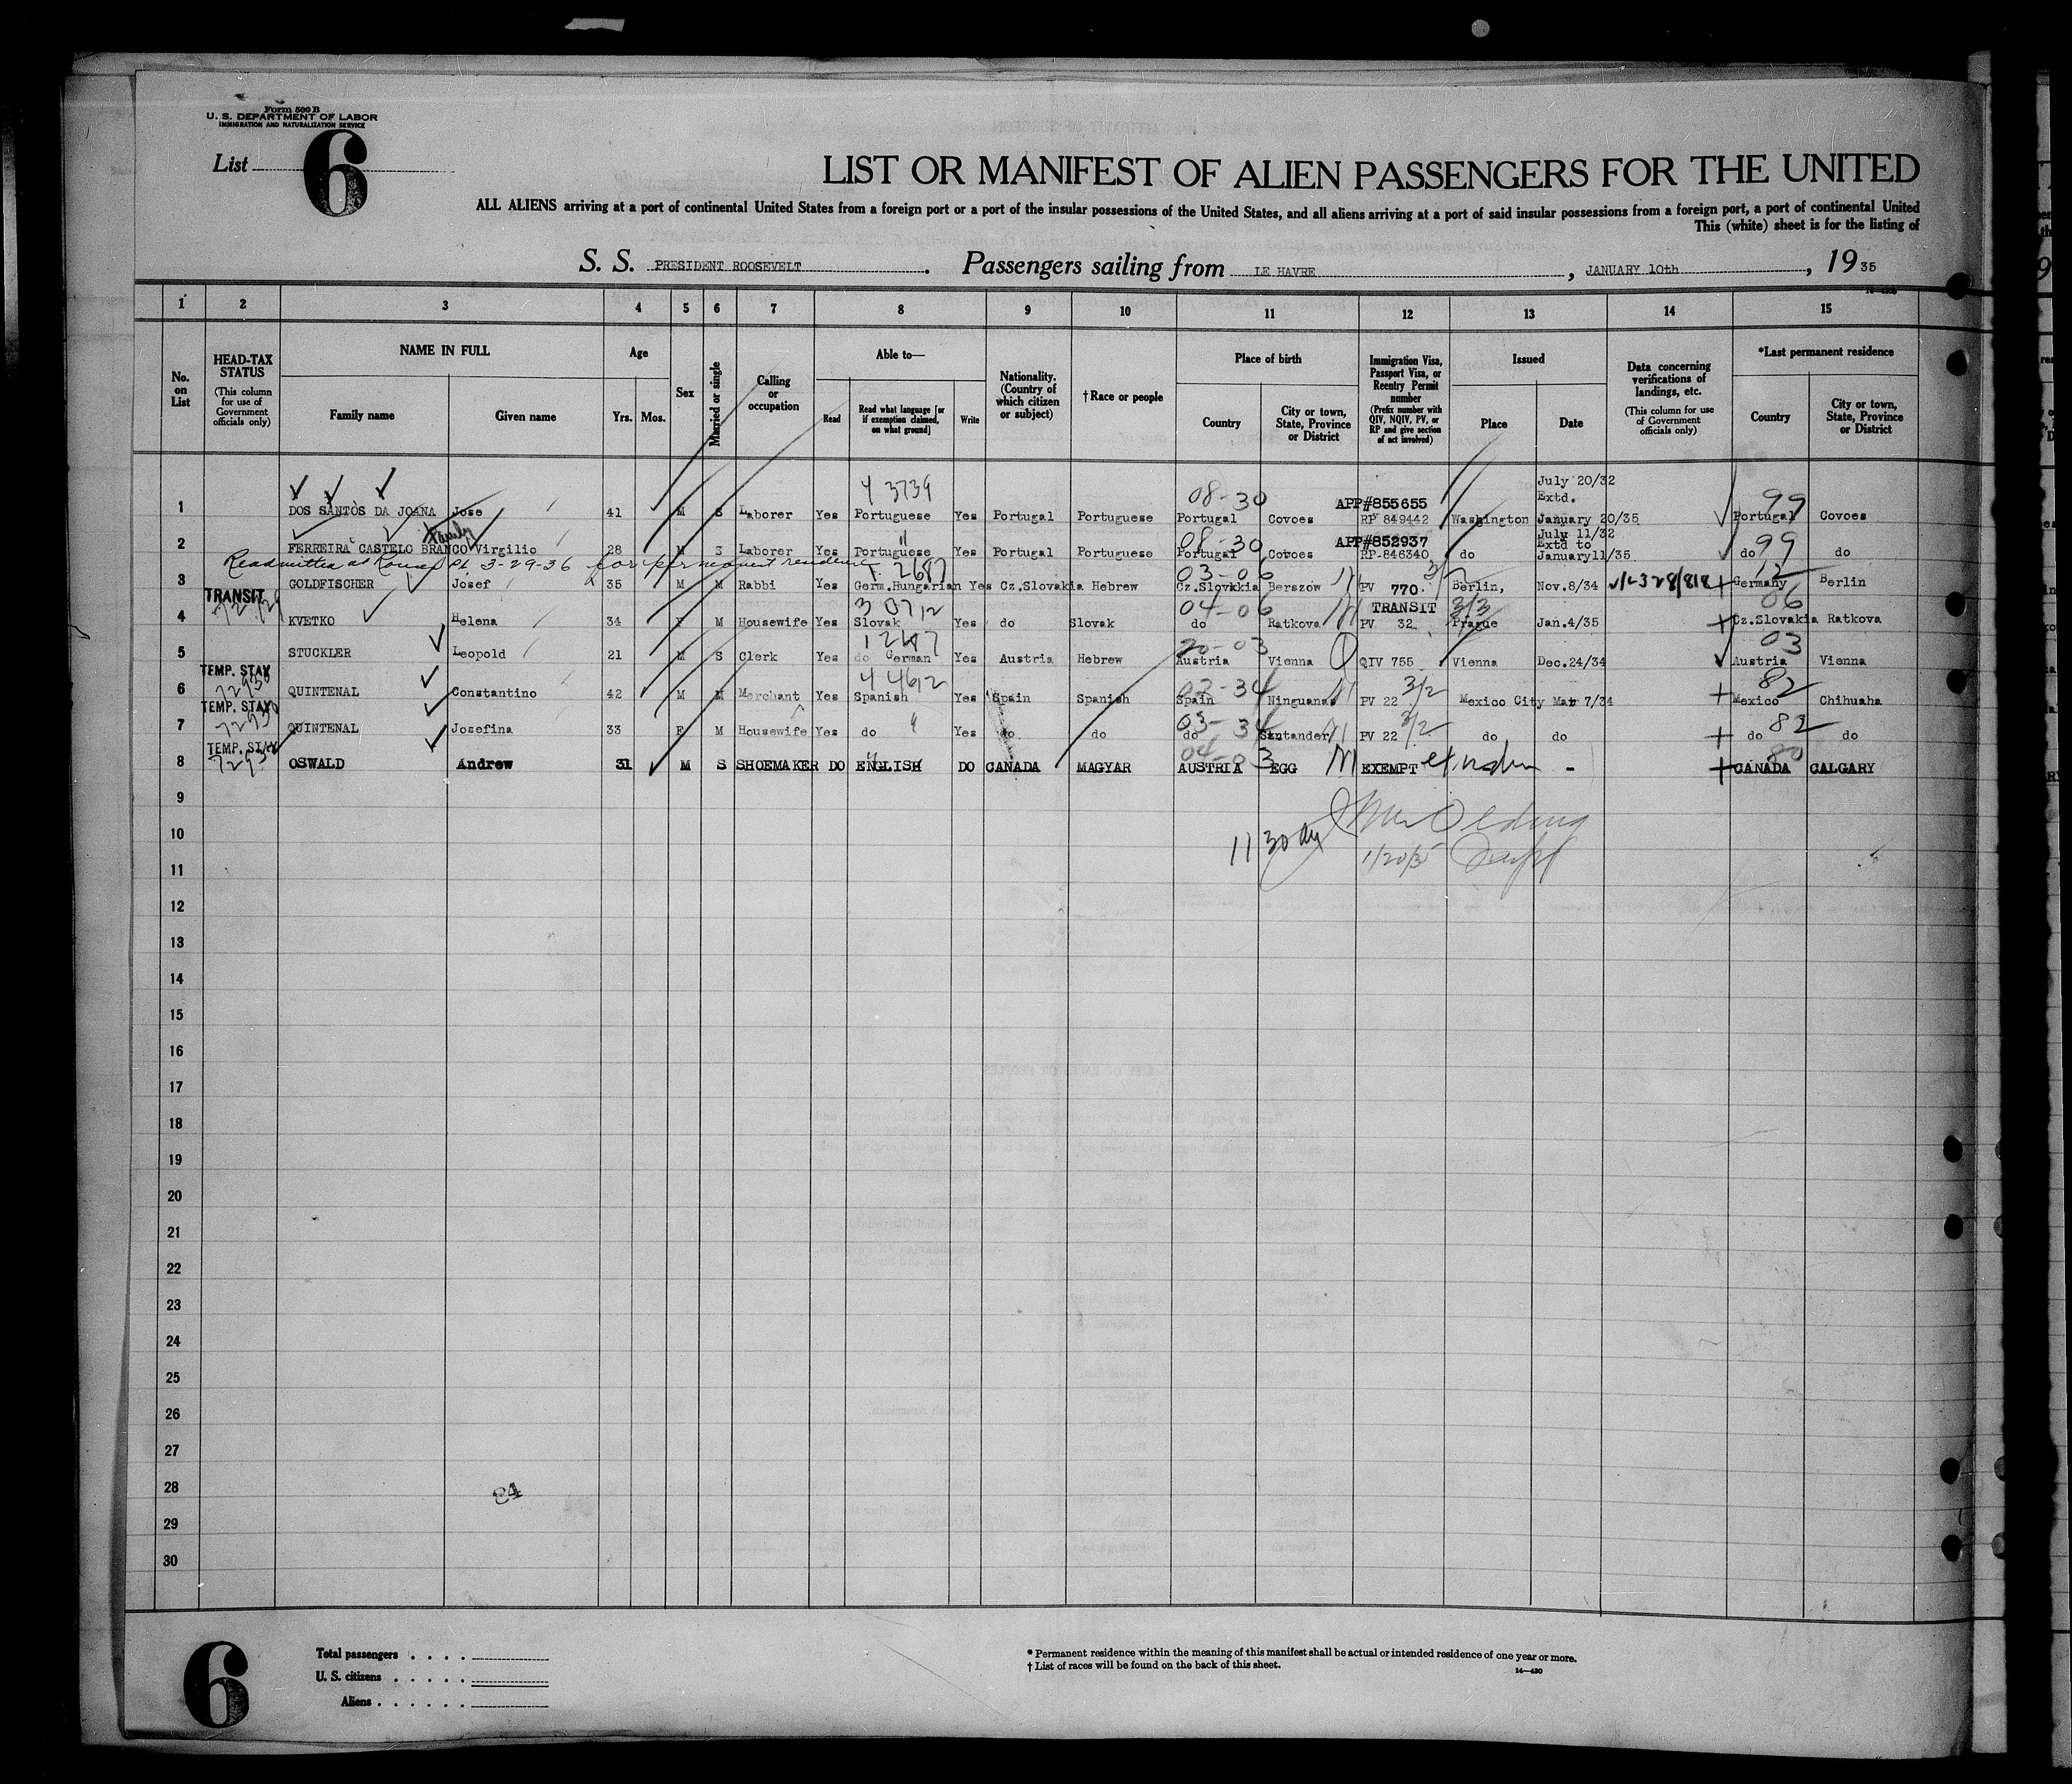 Form 500 B
U. S. DEPARTMENT OF LABOR
IMMIGRATION AND NATURALIZATION SERVICE
List 6
LIST OR MANIFEST OF ALIEN PASSENGERS FOR THE UNITED
ALL ALIENS arriving at a port of continental United States from a foreign port or a port of the insular possessions of the United States, and all aliens arriving at a port of said insular possessions from a foreign port, a port of continental United
This (white) sheet is for the listing of
S. S. PRESIDENT ROOSEVELT. Passengers sailing from LE HAVRE, JANUARY 10th, 1935
1 2 3 4 5 6 7 8 9 10 11 12 13 14 15
No. on List
HEAD-TAX STATUS (This column for use of Government officials only)
NAME IN FULL
Family name
Given name
Age
Yrs. Mos.
Sex
Married or single
Calling or occupation
Able to—
Read
Read what language [or if exemption claimed, on what ground]
Write
Nationality. (Country of which citizen or subject)
†Race or people
Place of birth
Country
City or town, State, Province or District
Immigration Visa, Passport Visa, or Reentry Permit number (Prefix number with QIV, NQIV, PV, or RP and give section of act involved)
Issued
Place
Date
Data concerning verifications of landings, etc. (This column for use of Government officials only)
*Last permanent residence
Country
City or town, State, Province or District
4 3739 08-30 APP#855655 July 20/32 Extd. 99
1 DOS SANTOS DA JOANA Jose 41 M S Laborer Yes Portuguese Yes Portugal Portuguese Portugal Covoes RP 849442 Washington January 20/35 Portugal Covoes
family " 08-30 APP#852937 July 11/32 Extd to 99
2 FERREIRA CASTELO BRANCO Virgilio 28 M S Laborer Yes Portuguese Yes Portugal Portuguese Portugal Covoes RP-846340 do January11/35 do do
Readmitted at Rouses Pt 3-29-36 for permanent residence
1 2687 03-06 12
3 GOLDFISCHER Josef 35 M M Rabbi Yes Germ.Hungarian Yes Cz.Slovakia Hebrew Cz.Slovkkia Berszow PV 770. Berlin, Nov.8/34 Germany Berlin
TRANSIT 04-06 TRANSIT 3/3 06
4 KVETKO Helena 34 F M Housewife Yes Slovak Yes do Slovak do Ratkova PV 32 Prague Jan.4/35 Cz.Slovakia Ratkova
20-03 03
5 STUCKLER Leopold 21 M S Clerk Yes do German Yes Austria Hebrew Austria Vienna QIV 755 Vienna Dec.24/34 Austria Vienna
TEMP. STAY 4 4612 3/2 82
6 QUINTENAL Constantino 42 M M Merchant Yes Spanish Yes Spain Spanish Spain Ninguanas PV 22 Mexico City Mar 7/34 Mexico Chihuaha
TEMP. STAY 3/2 82
7 QUINTENAL Josefina 33 F M Housewife Yes do Yes do do do Santander PV 22 do do do do
TEMP. STAY 04-03 80
8 OSWALD Andrew 31 M S SHOEMAKER DO ENGLISH DO CANADA MAGYAR AUSTRIA EGG EXEMPT - CANADA CALGARY
9
10
1/20/35
11
12
13
14
15
16
17
18
19
20
21
22
23
24
25
26
27
28
84
29
30
6
Total passengers . . . .
U. S. citizens . . . . .
Aliens . . . . . .
* Permanent residence within the meaning of this manifest shall be actual or intended residence of one year or more.
† List of races will be found on the back of this sheet.
14—430